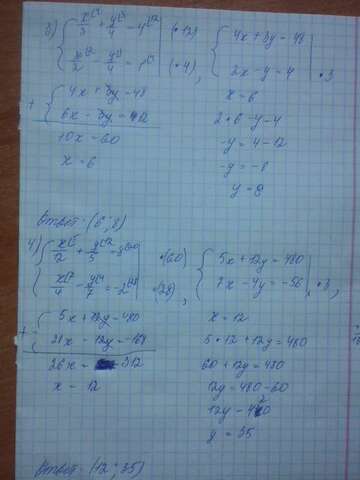 3) { x/3 + y/4 - 4 | (•12)
x/2 - y/4 = 1 | (•4),
{ 4x + 3y - 48
2x - y - 4 | • 3
+ { 4x + 3y - 48
6x - 3y - 12
10x - 60
x = 6
x = 6
2 • 6 - y - 4
-y = 4 - 12
-y = -8
y = 8
Ответ: (6; 8)
4) { x/12 + y/5 - 8 | •(60)
x/4 - y/7 = -2 | •(28),
{ 5x + 12y = 480
7x - 4y = -56 | • 3,
+ { 5x + 12y - 480
21x - 12y = -168
26x = 312
x = 12
x = 12
5 • 12 + 12y = 480
60 + 12y = 480
12y = 480 - 60
12y - 420
y = 35
Ответ: (12; 35)